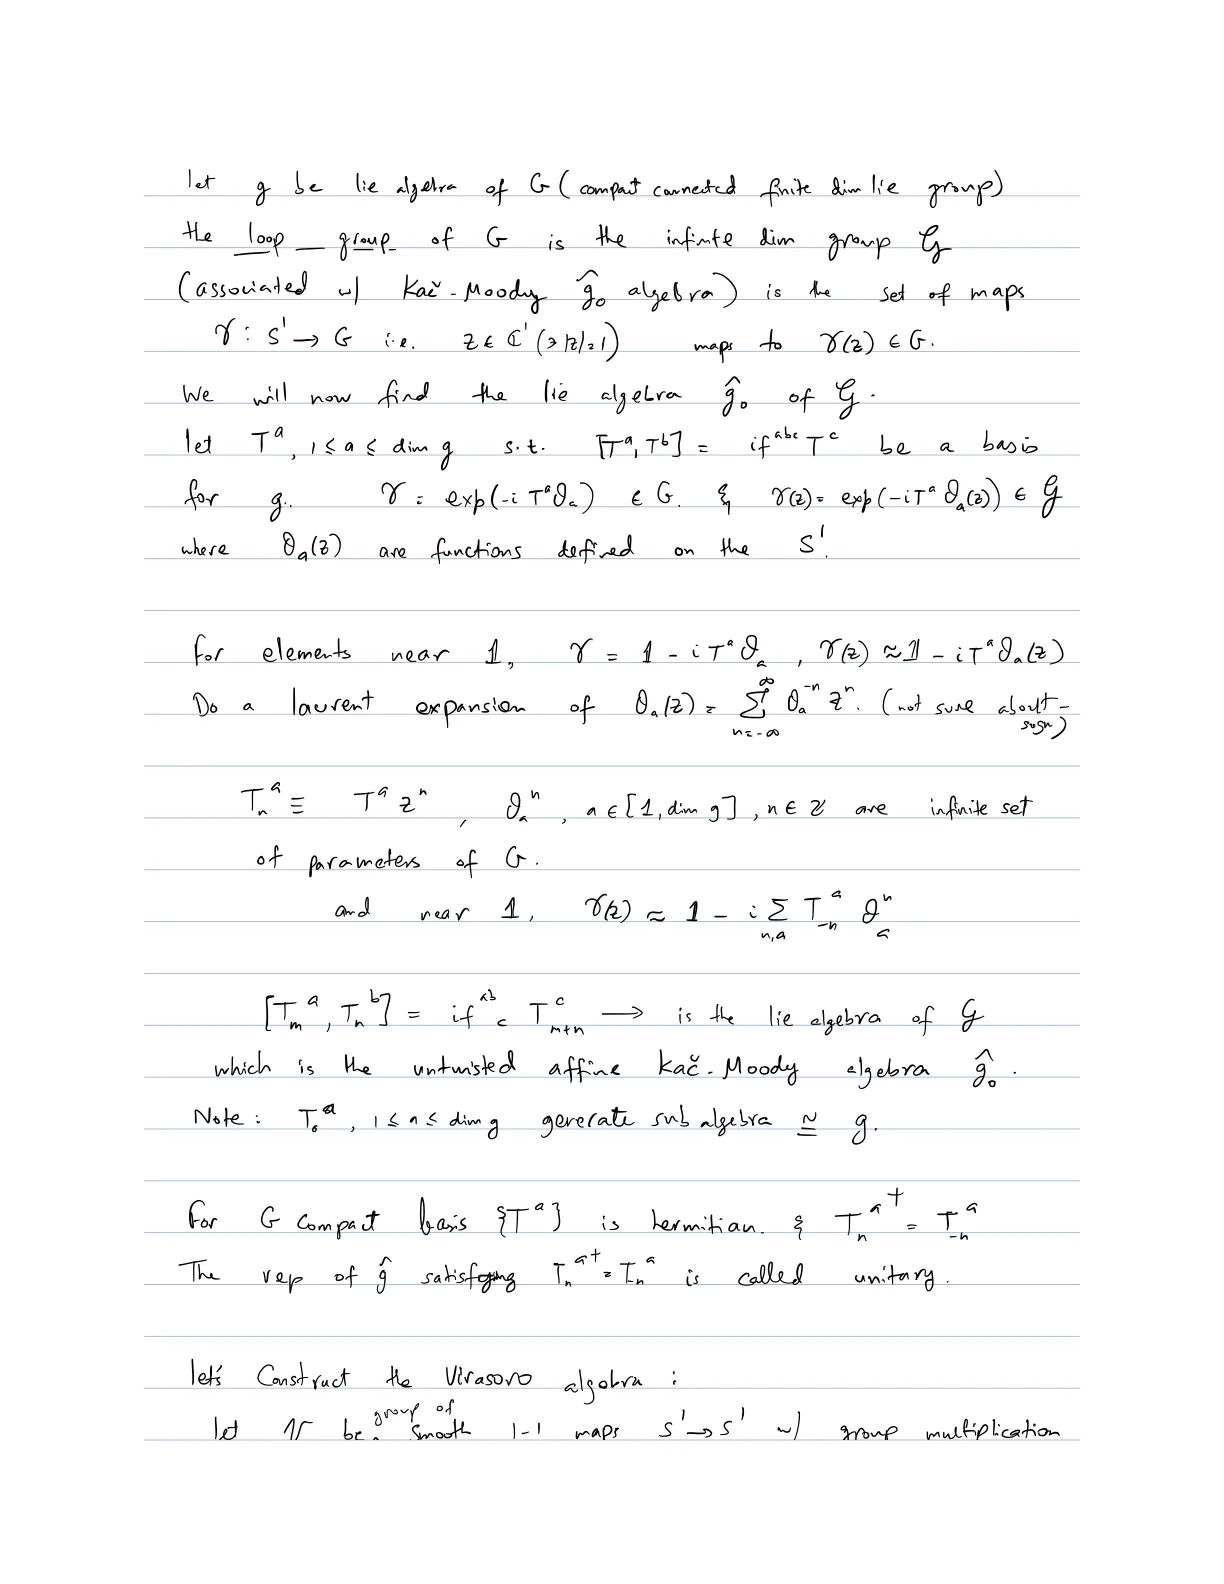 let g be lie algebra of G (compact connected finite dim lie group)
the loop group of G is the infinite dim group 𝒢
(associated w/ Kač-Moody ĝ₀ algebra) is the set of maps
γ : S¹ → G i.e. z ∈ ℂ¹ (∋ |z|=1) maps to γ(z) ∈ G.
We will now find the lie algebra ĝ₀ of 𝒢.
let Tᵃ, 1 ≤ a ≤ dim g s.t. [Tᵃ, Tᵇ] = if^{abc} T^c be a basis
for g. γ = exp(-i Tᵃθₐ) ∈ G. & γ(z) = exp(-iTᵃ θₐ(z)) ∈ 𝒢
where θₐ(z) are functions defined on the S¹.
For elements near 𝟙, γ = 𝟙 - i Tᵃθₐ, γ(z) ≈ 𝟙 - iTᵃθₐ(z)
Do a laurent expansion of θₐ(z) = Σ_{n=-∞}^{∞} θₐ^{-n} zⁿ. (not sure about - sign)
Tₙᵃ ≡ Tᵃ zⁿ, θₐⁿ, a ∈ [1, dim g], n ∈ ℤ are infinite set
of parameters of G.
and near 𝟙, γ(z) ≈ 𝟙 - i Σ_{n,a} T_{-n}^a θₐⁿ
[T_m^a, T_n^b] = if^{ab}_c T^c_{m+n} → is the lie algebra of 𝒢
which is the untwisted affine Kač-Moody algebra ĝ₀.
Note: T₀ᵃ, 1 ≤ a ≤ dim g generate sub algebra ≅ g.
For G compact basis {Tᵃ} is hermitian. & Tₙᵃ† = T₋ₙᵃ
The rep of ĝ satisfying Tₙᵃ† = T₋ₙᵃ is called unitary.
let's Construct the Virasoro algebra :
let 𝒱 be group of smooth 1-1 maps S¹ → S¹ w/ group multiplication